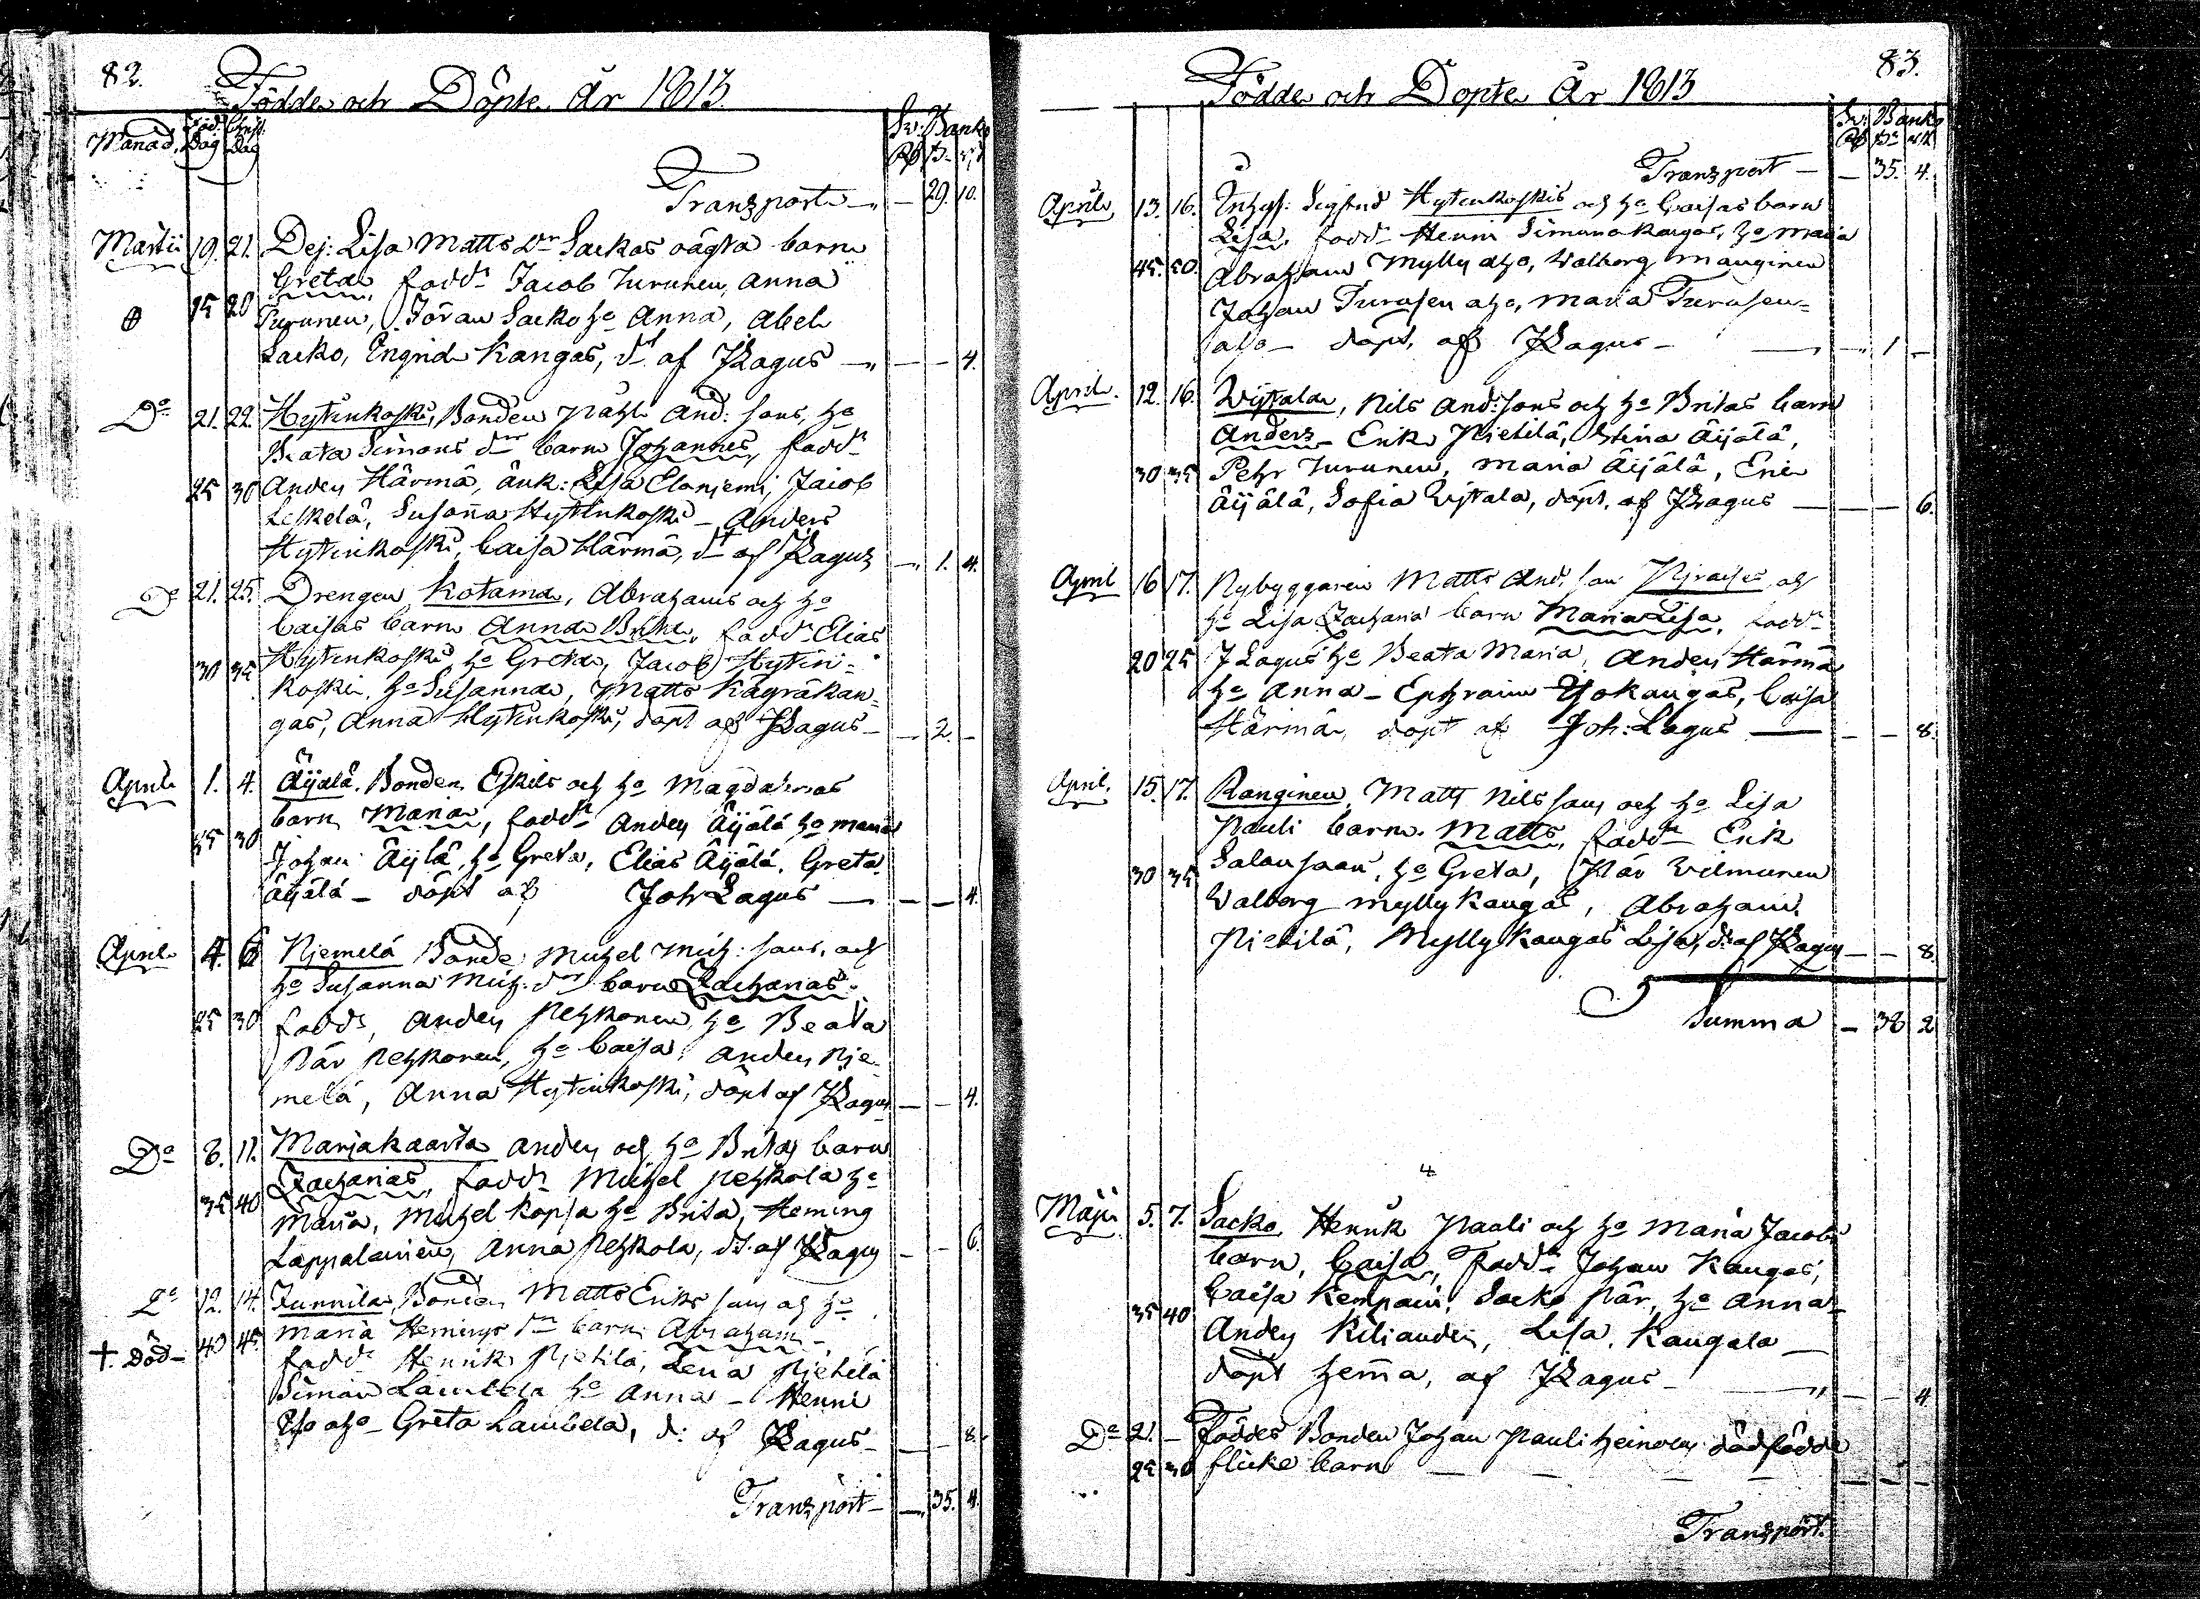 82.
Födde och Döpte År 1813
Månad. Föd: Dag Christ: Dag
Sv: Banko
Rd ß rst
Transport — 29. 10.
Martii 19. 21. Dej: Lisa Matts dr Sackos oägta barn
Greta, fadd: Jacob Turunen, Anna
25 20 Turunen, Jöran Sacko ha Anna, Abel
Sacko, Engrid Kangas, dt af JLagus — 4.
Do 21. 22. Hytinkoski, Bonden Påhl And: sons, ha
Beata Simons dr barn Johannes, fadd:
25 30 Anders Härmä, änk: Lisa Elaniemi, Jacob
Leskelä, Susanna Hytinkoski — Anders
Hytinkoski, Caisa Härmä, dt af JLagus — 1. 4.
Do 21. 25. Drengen Kotama, Abrahams och ha
Caisas barn Anna Brita, fadd: Elias
30 35 Hytinkoski ha Greta, Jacob Hytin-
koski, ha Susanna, Matts Kagräkan-
gas, Anna Hytinkoski, döpt af JLagus — 2. —
April 1. 4. Äijälä. Bonden Eskils och ha Magdalenas
barn Maria, fadd: Anders Äijälä ha Maria
25 30 Johan Äijlä, ha Greta, Elias Äijälä, Greta
Äijälä — döpt af Joh Lagus — 4.
April 4. 6 Niemelä Bonde Michel Mich: sons, och
ha Susanna Mich: dr barn Zacharias.
25 30 fadd:, Anders Pehkonen ha Beata
Pär Pehkonen, ha Caisa, Anders Nie-
melä, Anna Hytinkoski, döpt af JLagus — 4.
Do 8. 11. Marjakaarta Anders och ha Britas barn
Zacharias, fadd: Michel Pehkola ha
35 40 Maria, Michel Kopsa ha Brita, Heming
Lappalainen, Anna Pehkola, dt af JLagus — 6.
Do 12. 14. Junnila Bonden Matts Eriks sons och ha
† Död — 40 45 Maria Hemings dr barn Abraham —
fadd: Henrik Pietilä, Lena Pietilä
Simon Lambela ha Anna — Henric
Greta Lambela, d: af JLagus — 8.
Transport — 35. 4.
83.
Födde och Döpte År 1813
Sv: Banko
Rd ß rst
Transport — 35. 4.
April 13. 16. Inhys: Sigfrid Hytinkoskis och ha Caisas barn
Lisa, fadd: Henric Simunakangas, ha Maria
45. 50 Abraham Mylly aho, Walborg Manginen
Johan Turusen aho, Maria Turusen-
aho — döpt, af JLagus — 1 —
April. 12. 16. Wijtala, Nils And: sons och ha Britas barn
Anders — Erik Pietilä, Stina Äijälä,
30 35 Pehr Turunen, Maria Äijälä, Eric
Äijälä, Sofia Wijtala, döpt. af JLagus — 6.
April 16 17. Nybyggaren Matts And: son och
ha Lisa Zachariä barn Maria Lisa, fadd:
20 25 J Lagus ha Beata Maria, Anders Härmä
ha Anna — Ephraim Ylokangas, Caisa
Härmä, döpt af Joh: Lagus — 8.
April. 15. 17. Ranginen, Matts Nils sons och ha Lisa
Pauli barn. Matts, fadd: Erik
30 35 Salansaari, ha Greta, Pär Wilmunen
Walborg Myllykangas, Abraham
Pietilä, Myllykangas Lisa, d: af JLagus — 8.
Summa — 38 2
4
Maji 5. 7. Sacko Henrik Pauli och ha Maria Jacobs
barn, Caisa, fadd: Johan Kangas,
Caisa Kempain, Sacko Pär, ha Anna —
35 40 Anders Kiliander, Lisa. Kangala —
döpt hemma, af JLagus — 4
Do 21. — Föddes Bonden Johan Pauli Heinoens dödfödde
25 30 flicke barn — — — —
Transport.